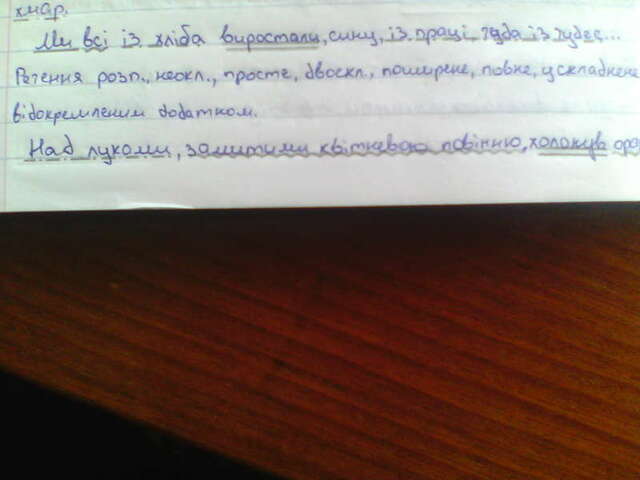 хмар.
Ми всі із хліба виростали, сину, із праці чуда із чудес...
Речення розп., неокл., просте, двоскл., поширене, повне, ускладнене
відокремленим додатком.
Над луками, залитими квітневою повінню, холонув